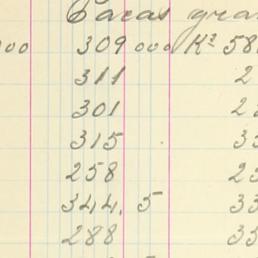 Caras gra
000 309 000 K² 58
311 2
301 2
315 3
258 2
344. 5 33
288 33